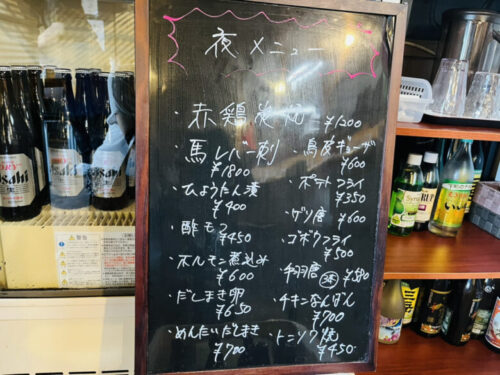 夜メニュー
・赤鶏炭焼 ¥1200
・馬レバー刺 ¥1800
・ひょうたん漬 ¥400
・酢モツ ¥450
・ホルモン煮込み ¥600
・だしまき卵 ¥650
・めんたいだしまき ¥700
・鳥皮ギョーザ ¥600
・ポテトフライ ¥350
・ザリ産 ¥600
・ゴボウフライ ¥500
・手羽唐 ¥580
・チキンなんばん ¥700
・トンソク焼 ¥450
Asahi
Asahi
警告